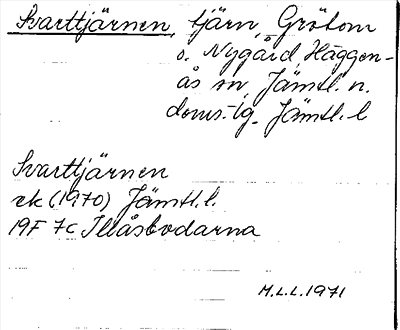 Svarttjärnen, tjärn, Grötom
o. Nygård, Häggen-
ås sn, Jämtl. n.
doms.-lg. Jämtl. l
Svarttjärnen
ek (1970) Jämtl. l.
19F 7c Illåsbodarna
H.L.L. 1971